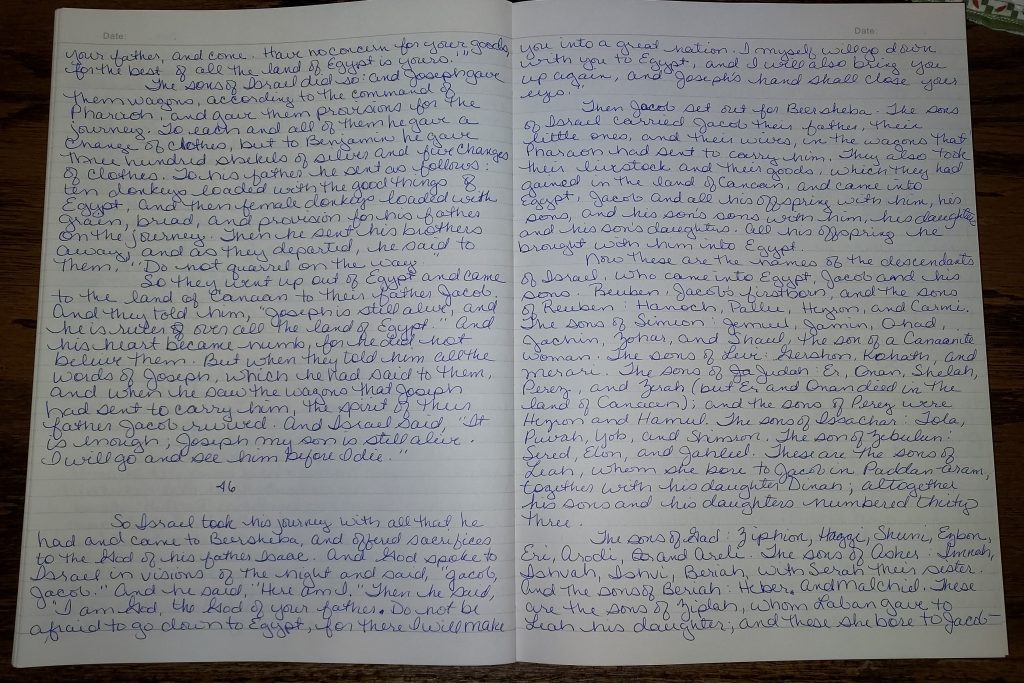 Date:
your father, and come. Have no concern for your goods,
for the best of all the land of Egypt is yours.'"
The sons of Israel did so: and Joseph gave
them wagons, according to the command of
Pharaoh, and gave them provisions for the
journey. To each and all of them he gave a
change of clothes, but to Benjamin he gave
three hundred shekels of silver and five changes
of clothes. To his father he sent as follows:
ten donkeys loaded with the good things of
Egypt, and then female donkeys loaded with
grain, bread, and provision for his father
on the journey. Then he sent his brothers
away, and as they departed, he said to
them, "Do not quarrel on the way."
So they went up out of Egypt and came
to the land of Canaan to their father Jacob.
And they told him, "Joseph is still alive, and
he is ruler of over all the land of Egypt." And
his heart became numb, for he did not
believe them. But when they told him all the
words of Joseph, which he had said to them,
and when he saw the wagons that Joseph
had sent to carry him, the spirit of their
father Jacob revived. And Israel said, "It
is enough; Joseph my son is still alive.
I will go and see him before I die."
46
So Israel took his journey with all that he
had and came to Beersheba, and offered sacrifices
to the God of his father Isaac. And God spoke to
Israel in visions of the night and said, "Jacob,
Jacob." And he said, "Here am I." Then he said,
"I am God, the God of your father. Do not be
afraid to go down to Egypt, for there I will make
Date:
you into a great nation. I myself will go down
with you to Egypt, and I will also bring you
up again, and Joseph's hand shall close your
eyes."
Then Jacob set out for Beersheba. The sons
of Israel carried Jacob their father, their
little ones, and their wives, in the wagons that
Pharaoh had sent to carry him. They also took
their livestock and their goods, which they had
gained in the land of Canaan, and came into
Egypt, Jacob and all his offspring with him, his
sons, and his son's sons with him, his daughters,
and his son's daughters. All his offspring he
brought with him into Egypt.
Now these are the names of the descendants
of Israel, who came into Egypt, Jacob and his
sons. Reuben, Jacob's firstborn, and the sons
of Reuben: Hanoch, Pallu, Hezron, and Carmi.
The sons of Simeon: Jemuel, Jamin, Ohad,
Jachin, Zohar, and Shaul, the son of a Canaanite
woman. The sons of Levi: Gershon, Kohath, and
Merari. The sons of Judah: Er, Onan, Shelah,
Perez, and Zerah (but Er and Onan died in the
land of Canaan); and the sons of Perez were
Hezron and Hamul. The sons of Issachar: Tola,
Puvah, Yob, and Shimron. The son of Zebulun:
Sered, Elon, and Jahleel. These are the sons of
Leah, whom she bore to Jacob in Paddan-aram,
together with his daughter Dinah; altogether
his sons and his daughters numbered thirty
three.
The sons of Gad: Ziphion, Haggi, Shuni, Ezbon,
Eri, Arodi, and Areli. The sons of Asher: Imnah,
Ishvah, Ishvi, Beriah, with Serah their sister.
And the sons of Beriah: Heber and Malchiel. These
are the sons of Zilpah, whom Laban gave to
Leah his daughter; and these she bore to Jacob-